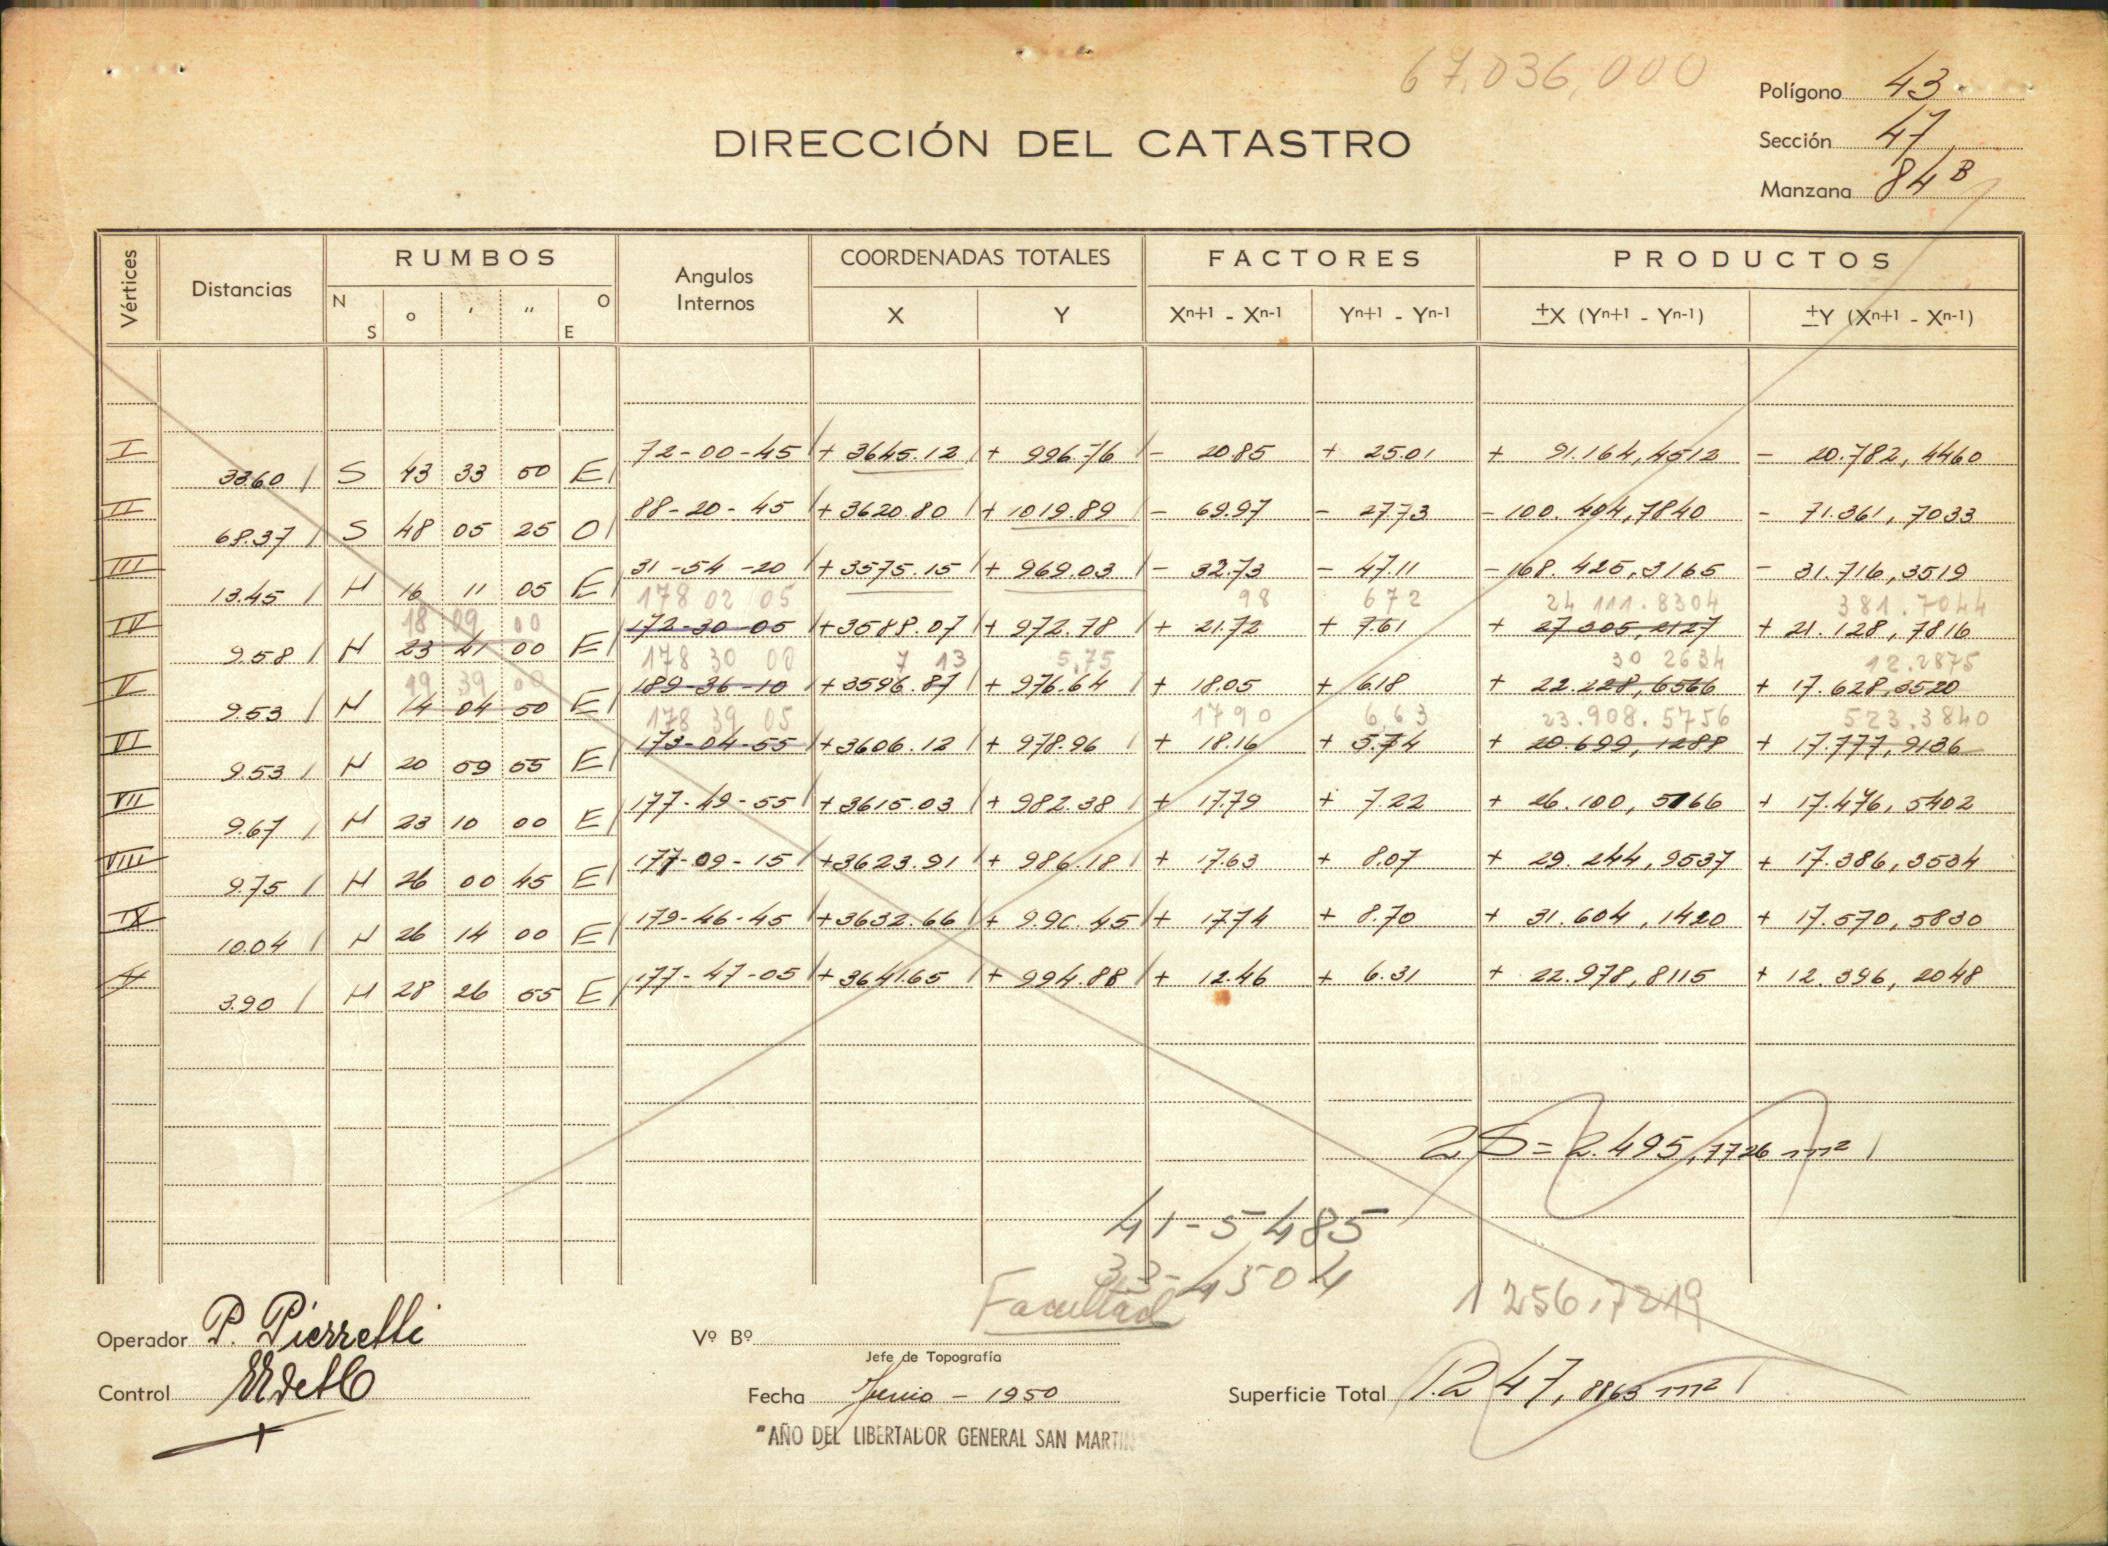 67,036,000
Polígono 43
DIRECCIÓN DEL CATASTRO
Sección 47
Manzana 84 B
Vértices Distancias RUMBOS Angulos Internos COORDENADAS TOTALES FACTORES PRODUCTOS
N S o ' " O E X Y Xn+1 - Xn-1 Yn+1 - Yn-1 ±X (Yn+1 - Yn-1) ±Y (Xn+1 - Xn-1)
I 72-00-45 + 3645.12 + 996.76 - 20.85 + 25.01 + 91.164,4512 - 20.782,4460
33.60 S 43 33 50 E
II 88-20-45 + 3620.80 + 1019.89 - 69.97 - 27.73 - 100.404,7840 - 71.361,7033
68.37 S 48 05 25 O
III 31-54-20 + 3575.15 + 969.03 - 32.73 - 47.11 - 168.425,3165 - 31.716,3519
13.45 N 16 11 05 E
178 02 05 98 672 24 111.8304 381.7044
18 09 00
IV 172-30-05 + 3588.07 + 972.78 + 21.72 + 7.61 + 27.305,2127 + 21.128,7816
9.58 N 23 41 00 E
178 30 00 7 13 5,75 30 2634 12.2875
19 39 00
V 189-36-10 + 3596.87 + 976.64 + 18.05 + 6.18 + 22.228,6566 + 17.628,3520
9.53 N 14 04 50 E
178 39 05 1790 6,63 23.908.5756 523.3840
VI 173-04-55 + 3606.12 + 978.96 + 18.16 + 5.74 + 20.699,1288 + 17.777,9136
9.53 N 20 59 55 E
VII 177-49-55 + 3615.03 + 982.38 + 17.79 + 7.22 + 26.100,5166 + 17.476,5402
9.67 N 23 10 00 E
VIII 177-09-15 + 3623.91 + 986.18 + 17.63 + 8.07 + 29.244,9537 + 17.386,3534
9.75 N 26 00 45 E
IX 179-46-45 + 3632.66 + 990.45 + 17.74 + 8.70 + 31.604,1420 + 17.570,5830
10.04 N 26 14 00 E
X 177-47-05 + 3641.65 + 994.88 + 12.46 + 6.31 + 22.978,8115 + 12.396,2048
3.90 N 28 26 55 E
2S = 2.495,7726 m²
41-5485
33-4504
Facultad
1256,7219
Operador P. Pierrelli
Vº Bº
Jefe de Topografía
Control
Fecha Junio - 1950
Superficie Total 1.247,8863 m²
"AÑO DEL LIBERTADOR GENERAL SAN MARTIN